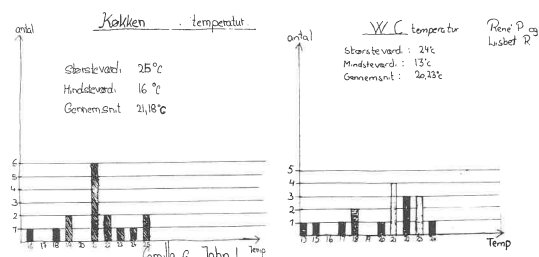 Køkken . temperatur.
antal
Størsteværdi 25°C
Mindsteværdi 16°C
Gennemsnit 21,18°C
6
5
4
3
2
1
16 17 18 19 20 21 22 23 24 25
Temp
Camilla G. John L
WC temperatur
René P og
Lisbet R
antal
Størsteværdi : 24°c
Mindsteværdi : 13°c
Gennemsnit : 20,23°c
5
4
3
2
1
13 15 17 18 19 20 21 22 23 24
Temp